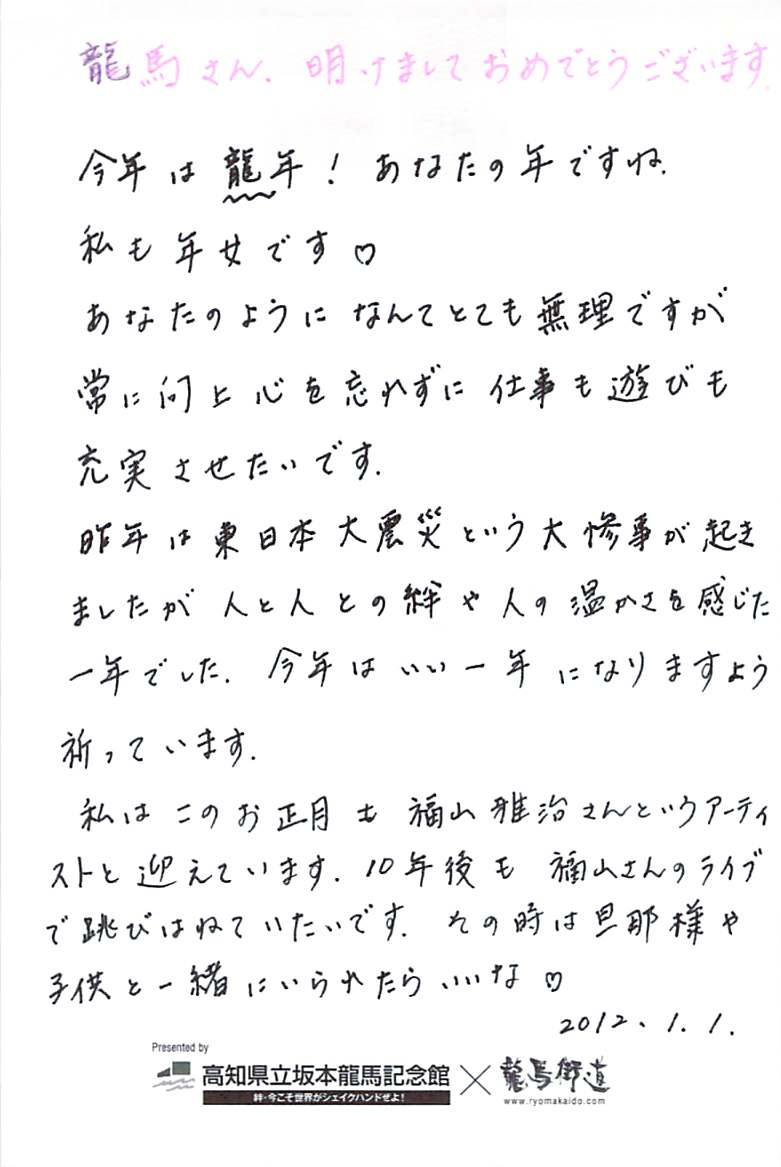 龍馬さん、明けましておめでとうございます。
今年は龍年！あなたの年ですね。
私も年女です♡
あなたのようになんてとても無理ですが
常に向上心を忘れずに仕事も遊びも
充実させたいです。
昨年は東日本大震災という大惨事が起き
ましたが人と人との絆や人の温かさを感じた
一年でした。今年はいい一年になりますよう
祈っています。
私はこのお正月も福山雅治さんというアーティ
ストと迎えています。10年後も福山さんのライブ
で跳びはねていたいです。その時は旦那様や
子供と一緒にいられたらいいな♡
2012.1.1.
Presented by
高知県立坂本龍馬記念館×龍馬街道
絆・今こそ世界がシェイクハンドせよ！
www.ryomakaido.com